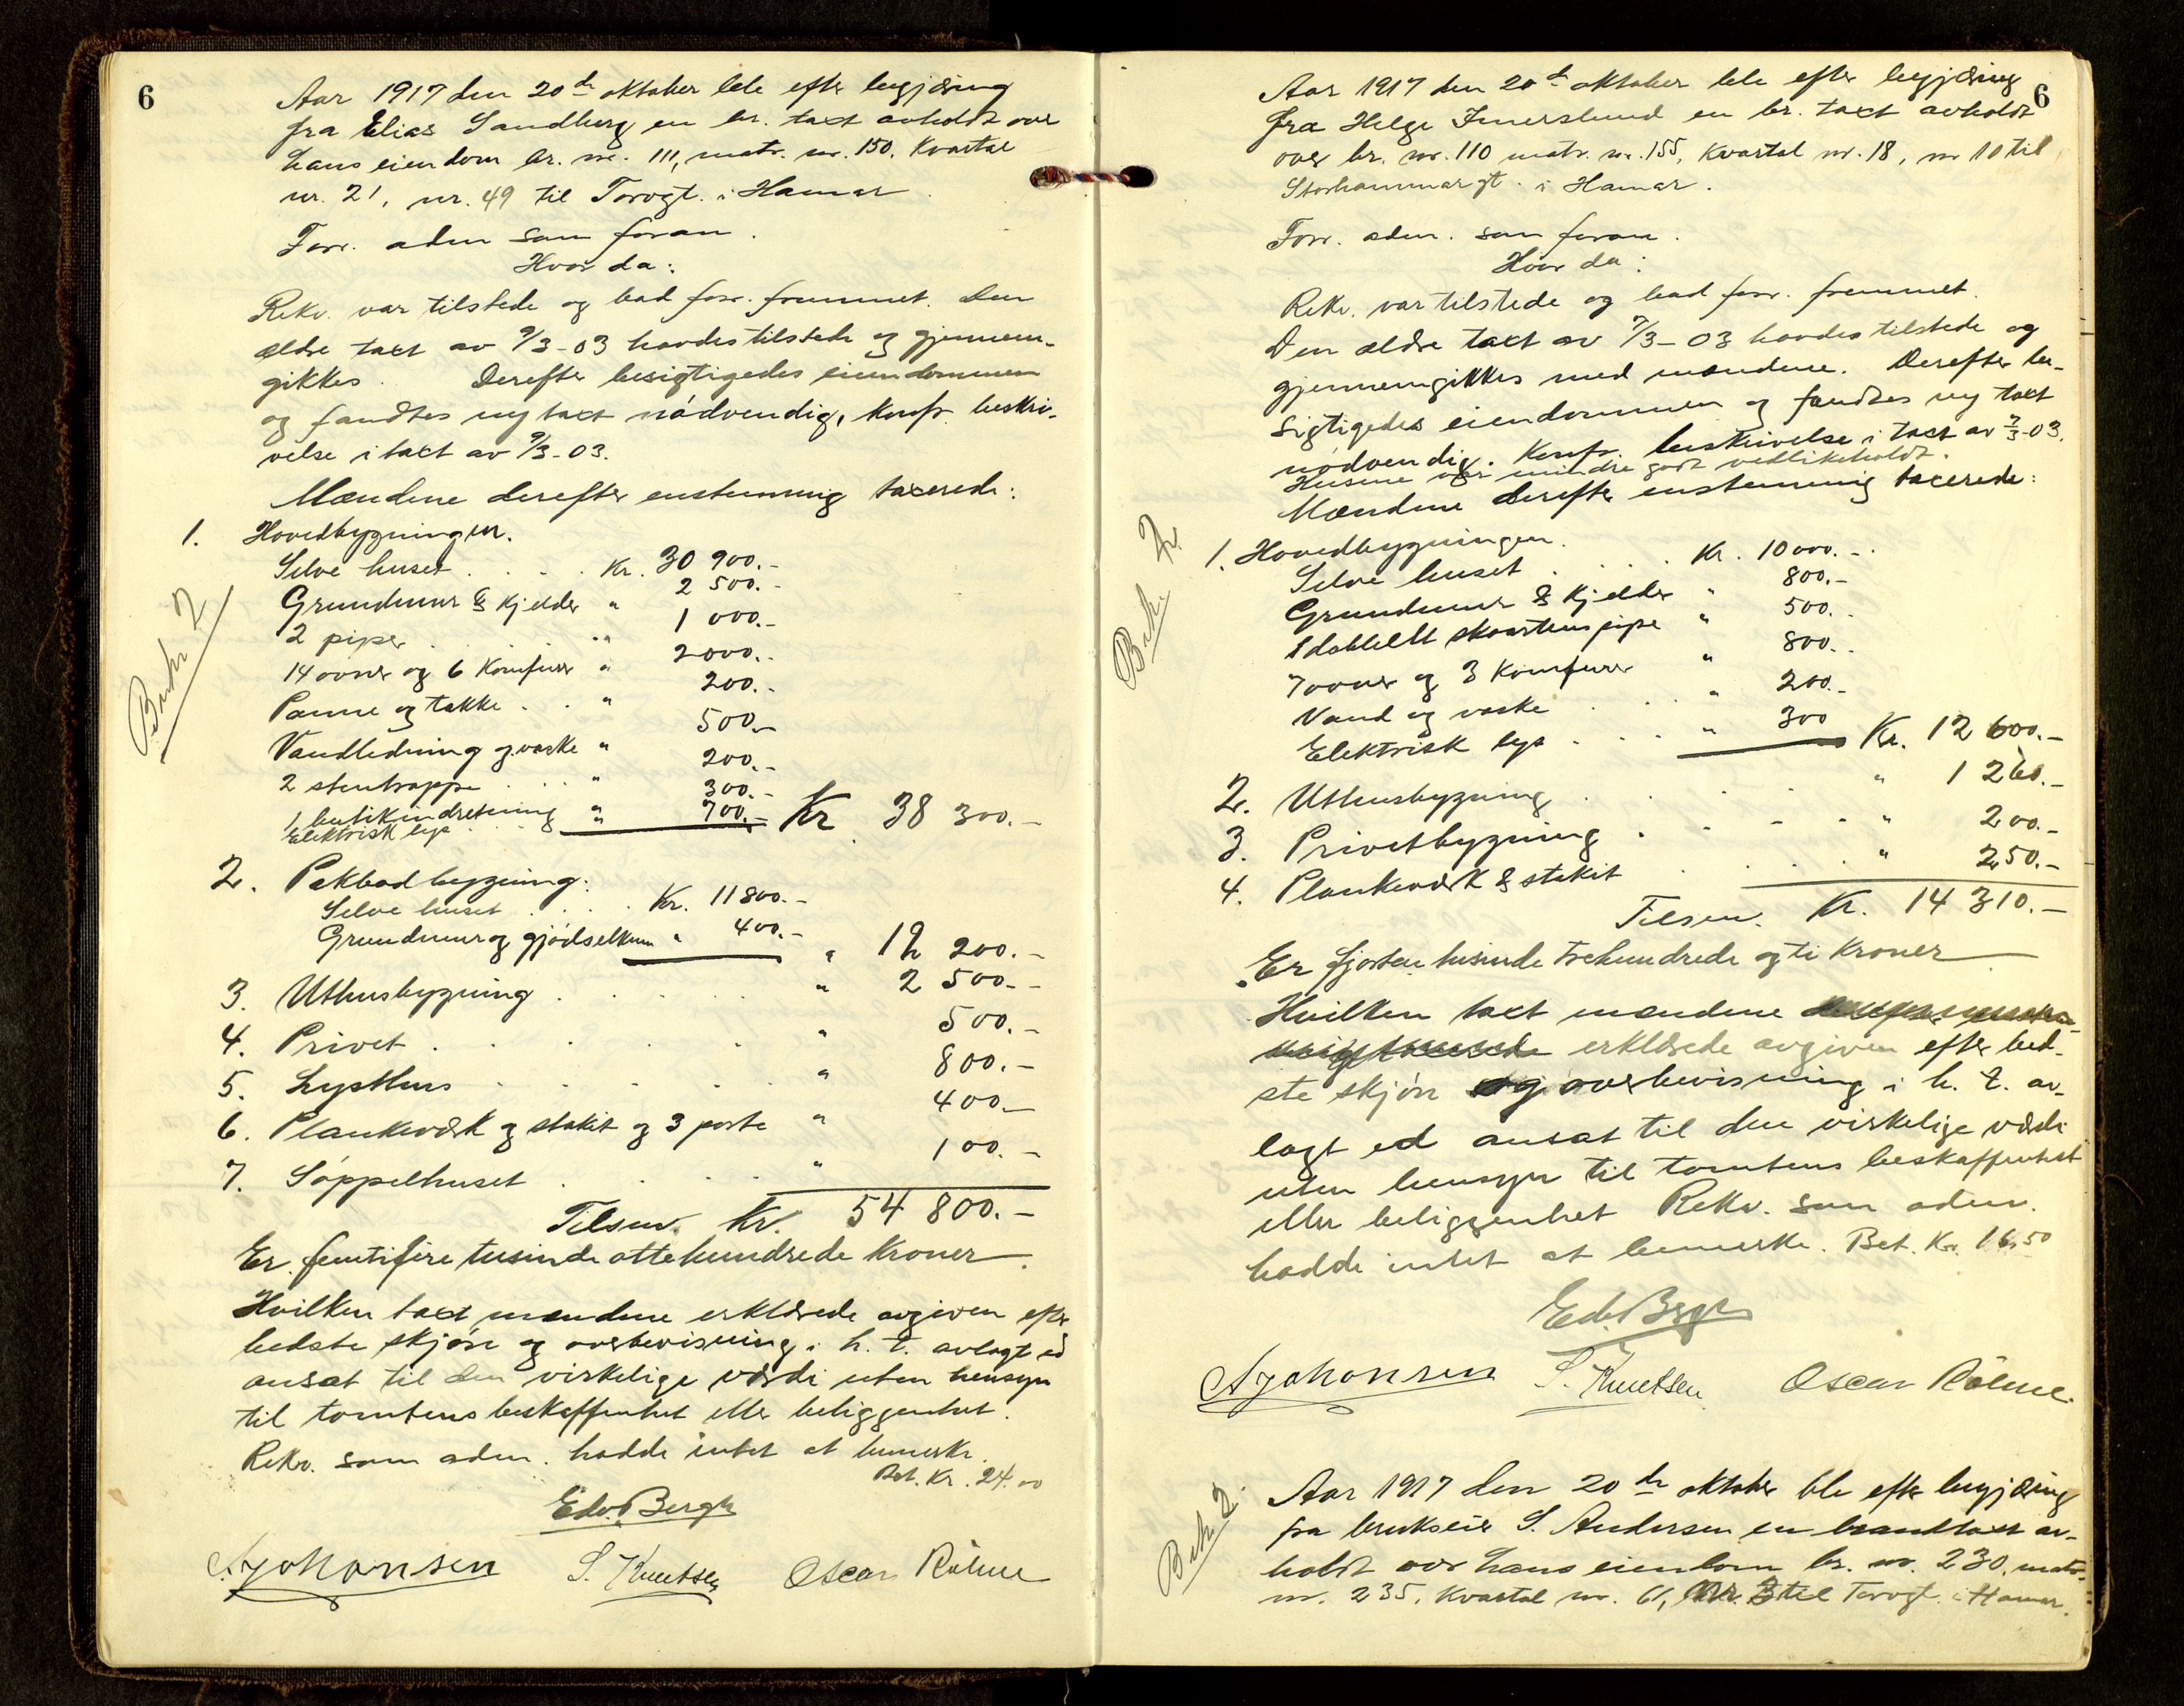 6
Aar 1917 den 20de oktober ble efter begjæring
fra Elias Sandberg en br. taxt avholdt over
hans eiendom br. nr. 111, matr. nr. 150. Kvartal
nr. 21, nr. 49 til Torvgt. i Hamar.
Forr. aden som foran.
Hvor da:
Rekv. var tilstede og bad forr. fremmet. Den
ældre taxt av 9/3-03 havdes tilstede og gjennem-
gikkes. Derefter besigtigedes eiendommen
og fandtes ny taxt nødvendig, konfr. beskri-
velse i taxt av 9/3-03.
Mændene derefter enstemmig taxerede:
1. Hovedbygningen.
Selve huset . . . . Kr. 30 900.-
Grundmur & Kjelder " 2 500.-
2 piper . . . " 1 000.-
14 ovner og 6 Komfurer " 2000.-
Panne og takke . . " 200.-
Vandledning og vaske " 500.-
2 stentrappe . . . " 200.-
1 butikindretning " 300.-
Elektrisk lys . . . " 700.- Kr. 38 300.-
2. Pakbodbygning:
Selve huset . . . . Kr. 11800.-
Grundmur og gjødselkum " 400.- " 12 200.-
3. Uthusbygning . . . . . " 2 500.-
4. Privet . . . . . . " 500.-
5. Lysthus . . . . . " 800.-
6. Plankeværk og stakit og 3 porte " 400.-
7. Søppelhuset . . . . " 100.-
Tilsm. Kr. 54 800.-
Er femtifire tusinde ottehundrede Kroner.
Hvilken taxt mændene erklærede avgiven efter
bedste skjøn og overbevisning i h. t. avlagt ed
ansat til den virkelige værdi uten hensyn
til tomtens beskaffenhet eller beliggenhet.
Rekv. som aden. hadde intet at bemerke.
Bet. Kr. 24.00
Edv. Bergh
A Johansen S. Knutsen Oscar Rølme
6
Aar 1917 den 20de oktober ble efter begjæring
fra Helge Imerslund en br. taxt avholdt
over br. nr. 110 matr. nr. 155, Kvartal nr. 18, nr 10 til
Storhammargt. i Hamar.
Forr. aden. som foran.
Hvor da:
Rekv. var tilstede og bad forr. fremmet.
Den ældre taxt av 7/3-03 havdes tilstede og
gjennemgikkes med mændene. Derefter be-
sigtigedes eiendommen og fandtes ny taxt
nødvendig. Konfr. beskrivelse i taxt av 7/3-03.
Husene var mindre godt vedlikeholdt.
Mændene derefter enstemmig taxerede:
1. Hovedbygningen.
Selve huset . . . . Kr. 10000.-
Grundmur & Kjelder " 800.-
1 dobbelt skorstenspipe " 500.-
7 ovner og 3 Komfurer " 800.-
Vand og vaske . . . " 200.-
Elektrisk lys . . . . " 300 Kr. 12 600.-
2. Uthusbygning . . . . " 1 260.-
3. Privetbygning . . . . " 200.-
4. Plankeværk & stakit . . . . " 250.-
Tilsm. Kr. 14 310.-
Er fjorten tusinde trehundrede og ti Kroner
Hvilken taxt mændene
erklærede avgiven efter bed-
ste skjøn og overbevisning i h. t. av-
lagt ed ansat til den virkelige værdi
uten hensyn til tomtens beskaffenhet
eller beliggenhet. Rekv. som aden.
hadde intet at bemerke. Bet. Kr. 16.50
Edv. Bergh
A Johansen S. Knutsen Oscar Rølme.
Aar 1917 den 20de oktober ble efter begjæring
fra brukseier S. Andersen en brandtaxt av-
holdt over hans eiendom br. nr. 230, matr.
nr. 235, Kvartal nr. 61, Nr. 3 til Torvgt. i Hamar.